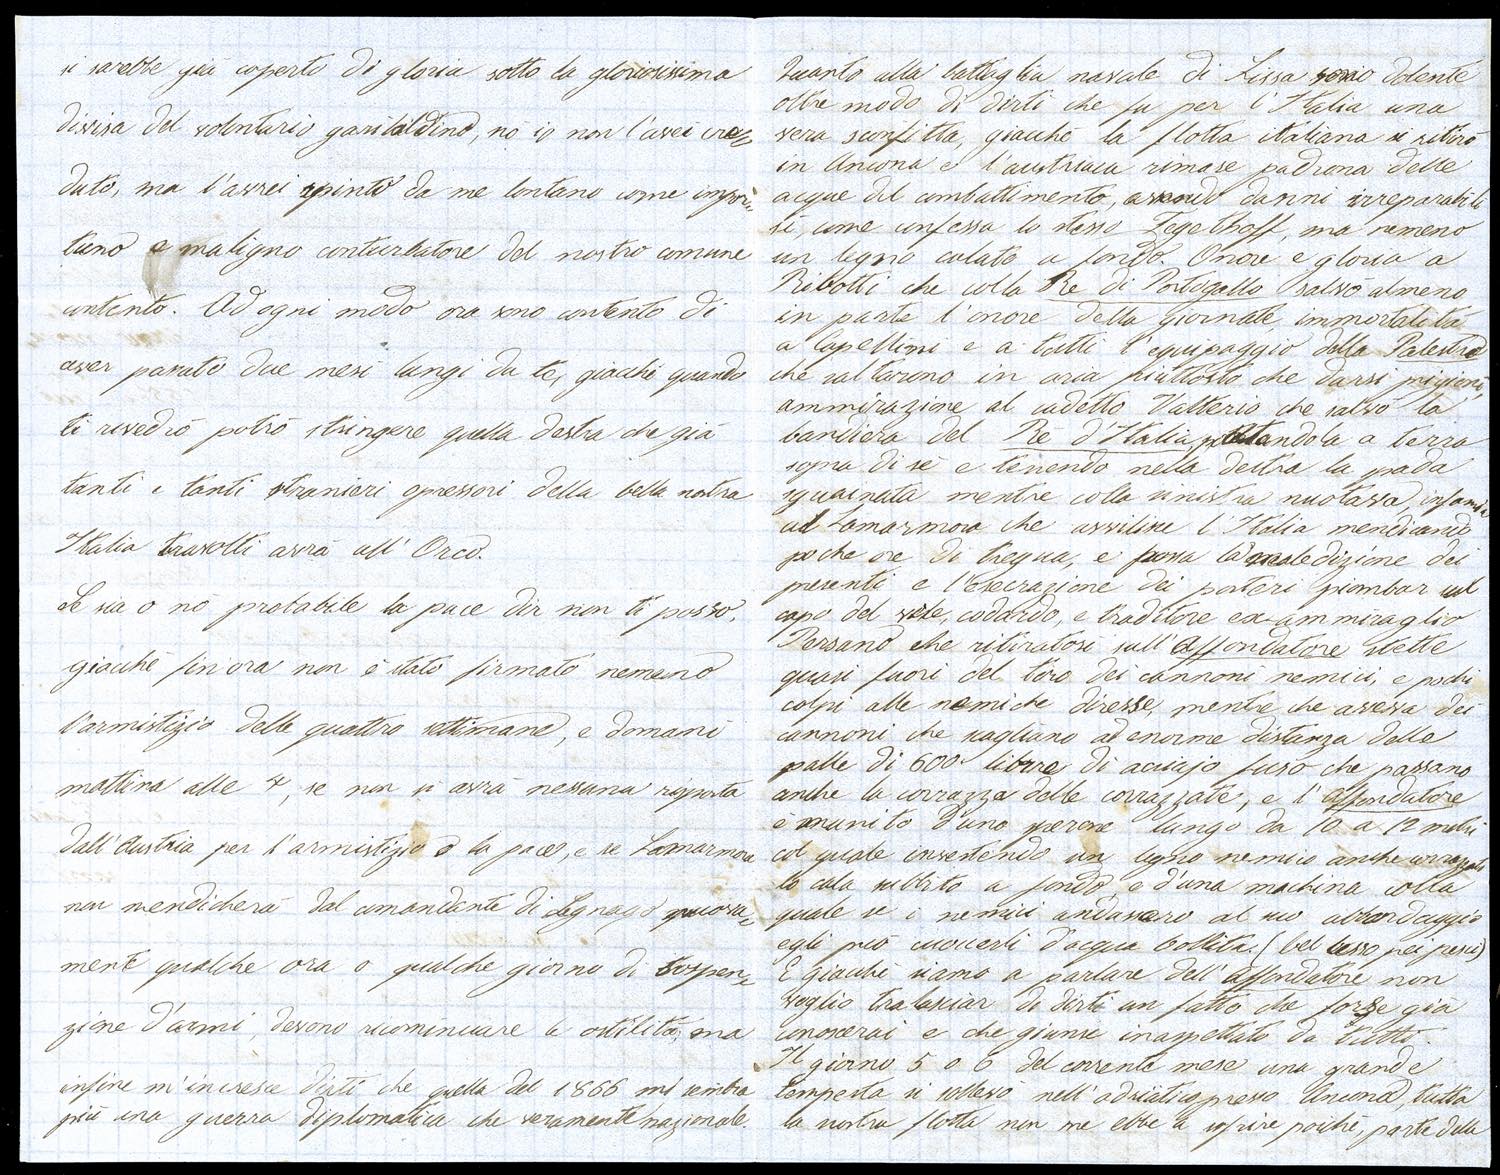 si sarebbe già coperto di gloria sotto la gloriosissima
divisa del volontario garibaldino, nò io non l'avei cre=
duto, ma l'avrei spinto da me lontano come impor=
tuno e maligno conturbatore del nostro comune
contento. Ad ogni modo ora sono contento di
aver passato due mesi lungi da te, giacchè quando
ti rivedrò potrò stringere quella destra che già
tanti e tanti stranieri opressori della bella nostra
Italia travolti avrà all'Orco.
Se sia o nò probabile la pace dir non ti posso,
giacchè fin ora non è stato firmato nemeno
l'armistizio delle quattro settimane, e domani
mattina alle 4, se non si avrà nessuna risposta
dall'Austria per l'armistizio o la pace, e se Lamarmora
non mendicherà dal comandante di Legnago nuova=
mente qualche ora o qualche giorno di sospen=
zione d'armi, devono ricominciare le ostilità; ma
infine m'incresce dirti che quella del 1866 mi sembra
più una guerra diplomatica che veramente nazionale.
Quanto alla battaglia navale di Lissa sono dolente
oltre modo di dirti che fu per l'Italia una
vera sconfitta, giacchè la flotta italiana si ritirò
in Ancona e l'austriaca rimase padrona delle
acque del combattimento, avendo danni irreparabili
sì, come confessa lo stesso Tegethoff, ma nemeno
un legno colato a fondo. Onore e gloria a
Ribotti che colla Re di Portogallo salvò almeno
in parte l'onore della giornata, immortalità
a Capellini e a tutti l'equipaggio della Palestro
che saltarono in aria piuttosto che darsi prigioni,
ammirazione al cadetto Valterio che salvò la
bandiera del Rè d'Italia portandola a terra
sopra di sè e tenendo nella destra la spada
sguainata mentre colla sinistra nuotava, infamia
al Lamarmora che avvilisce l'Italia mendicando
poche ore di tregua, e possa la maledizione dei
presenti e l'esecrazione dei posteri piombar sul
capo del vile, codardo, e traditore ex-ammiraglio
Persano che ritiratosi sull'Affondatore stette
quasi fuori del tiro dei cannoni nemici, e pochi
colpi alle nemiche diresse, mentre che aveva dei
cannoni che scagliano ad enorme distanza delle
palle di 600 libbre di acciajo fuso che passano
anche la corrazza delle corrazzate, e l'Affondatore
è munito d'uno sperone lungo da 10 a 12 metri
col quale investendo un legno nemico anche corrazzato
lo cala subbito a fondo e d'una machina colla
quale se i nemici andassero al suo abbordaggio
egli può cuocerli d'acqua bollita. (bel lesso pei pesci)
E giacchè siamo a parlare dell'Affondatore non
voglio tralasciar di dirti un fatto che forse già
conoscerai e che giunse inaspettato da tutti.
Il giorno 5 o 6 del corrente mese una grande
tempesta si sollevò nell'adriatico presso Ancona, tutta
la nostra flotta non me ebbe a sofrire poichè, parte della